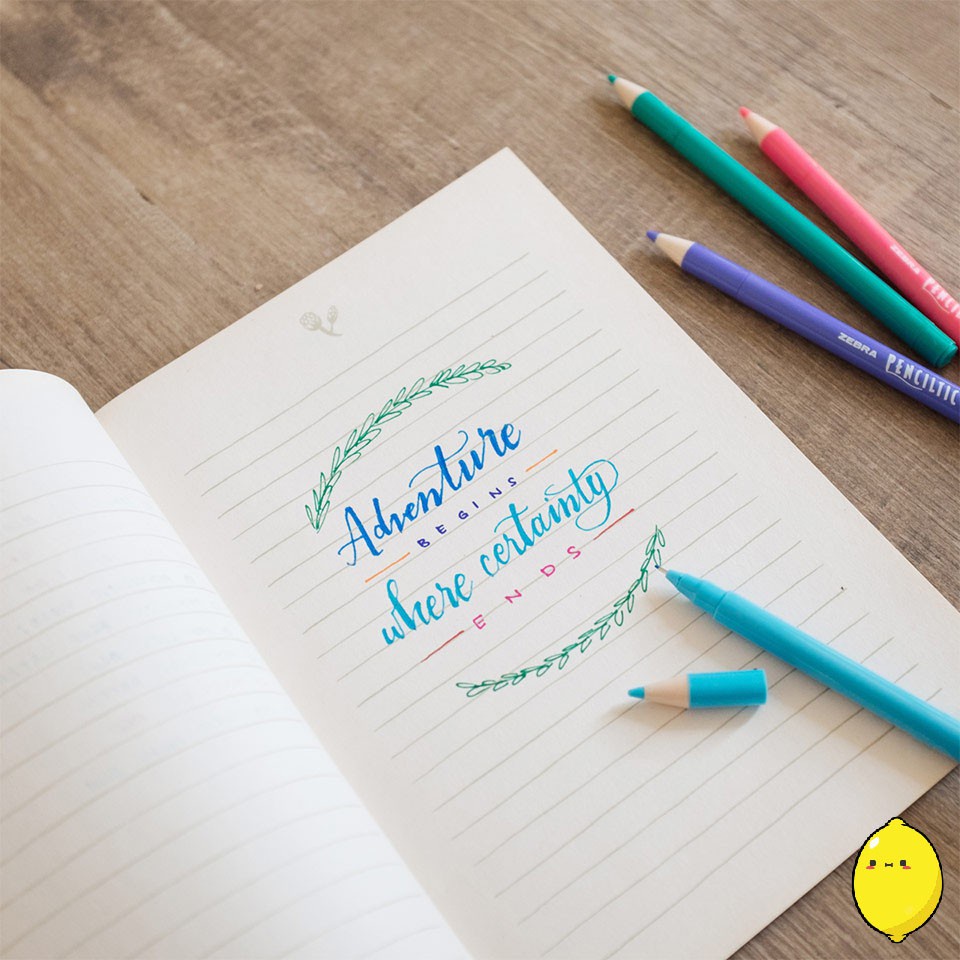 Adventure
BEGINS
where certainty
ENDS
ZEBRA PENCILTIC
ZEBRA